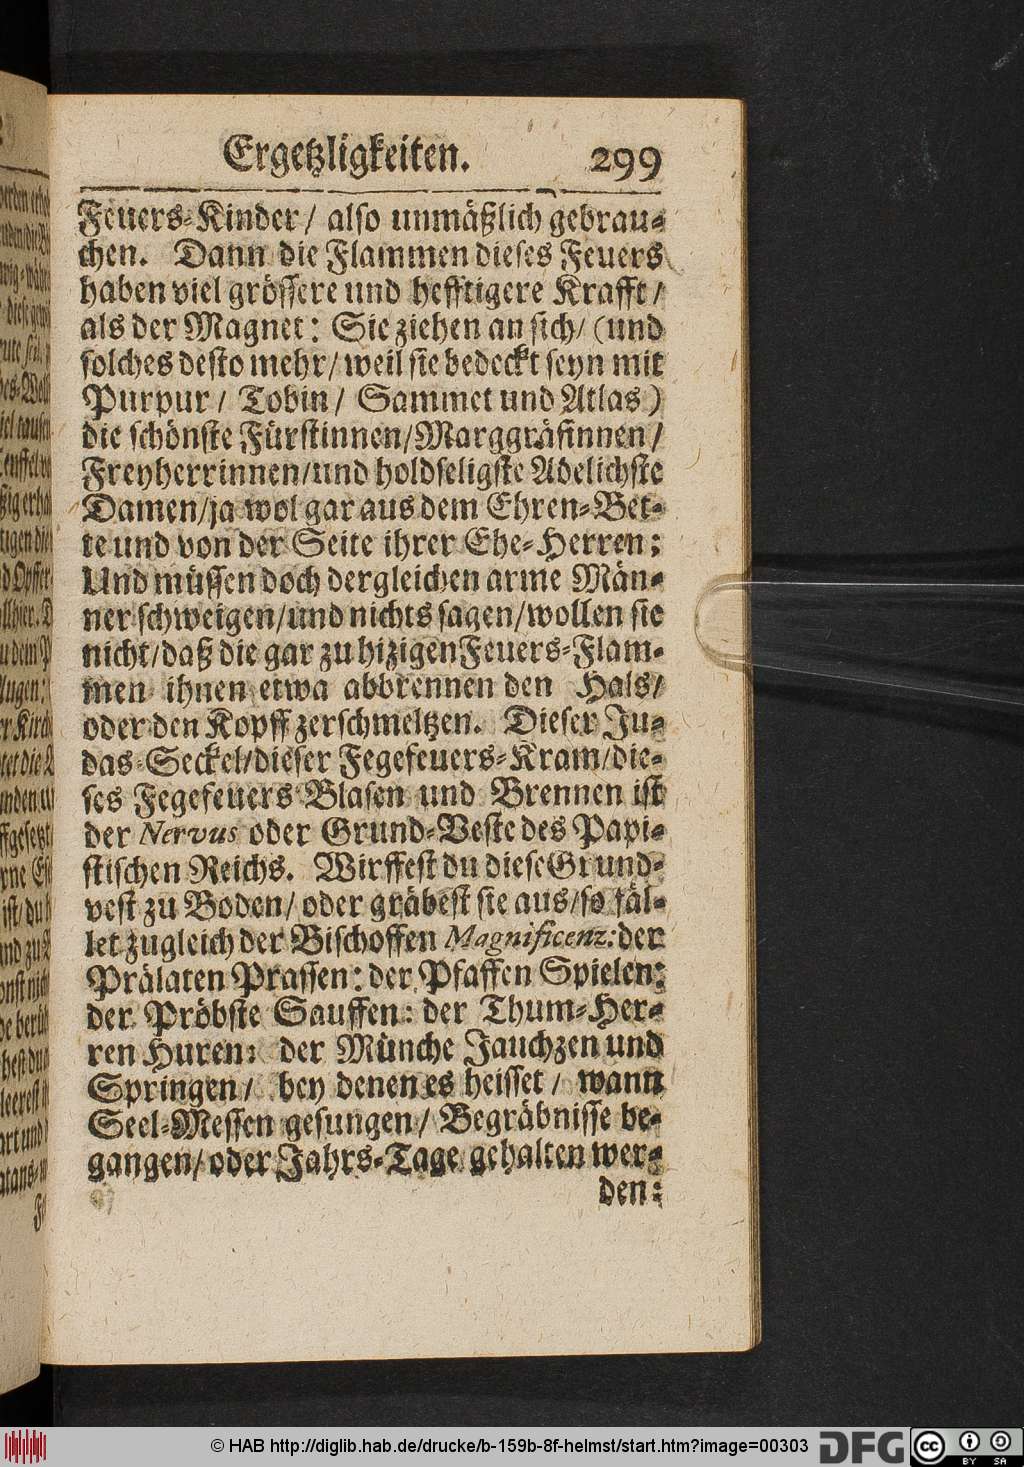 Ergetzligkeiten. 299
Feuers-Kinder/ also unmäßlich gebrau-
chen. Dann die Flammen dieses Feuers
haben viel grössere und hefftigere Krafft/
als der Magnet: Sie ziehen an sich/ (und
solches desto mehr/ weil sie bedeckt seyn mit
Purpur/ Tobin/ Sammet und Atlas)
die schönste Fürstinnen/Marggräfinnen/
Freyherrinnen/und holdseligste Adelichste
Damen/ja wol gar aus dem Ehren-Bet-
te und von der Seite ihrer Ehe-Herren:
Und müssen doch dergleichen arme Män-
ner schweigen/und nichts sagen/wollen sie
nicht/daß die gar zu hizigen Feuers-Flam-
men ihnen etwa abbrennen den Hals/
oder den Kopff zerschmeltzen. Dieser Ju-
das-Seckel/dieser Fegefeuers-Kram/die-
ses Fegefeuers Blasen und Brennen ist
der Nervus oder Grund-Veste des Papi-
stischen Reichs. Wirffest du diese Grund-
vest zu Boden/ oder gräbest sie aus/so fäl-
let zugleich der Bischoffen Magnificenz: der
Prälaten Prassen: der Pfaffen Spielen:
der Pröbste Sauffen: der Thum-Her-
ren Huren: der Münche Jauchzen und
Springen/ bey denen es heisset/ wann
Seel-Messen gesungen/ Begräbnisse be-
gangen/oder Jahrs-Tage gehalten wer-
den:
© HAB http://diglib.hab.de/drucke/b-159b-8f-helmst/start.htm?image=00303
DFG
CC BY SA